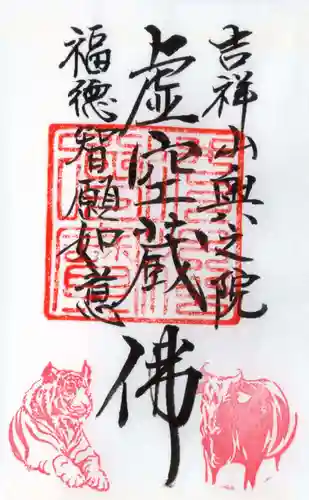 吉祥山奥之院
虚空蔵佛
福德智願如意